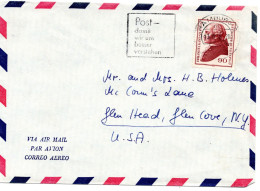 Post—
damit
wir uns
besser
verstehen
90
Mr. and Mrs. H. B. Holmes
Mc Coun's Lane
Glen Head, Glen Cove, N.Y.
U.S.A.
VIA AIR MAIL
PAR AVION
CORREO AEREO